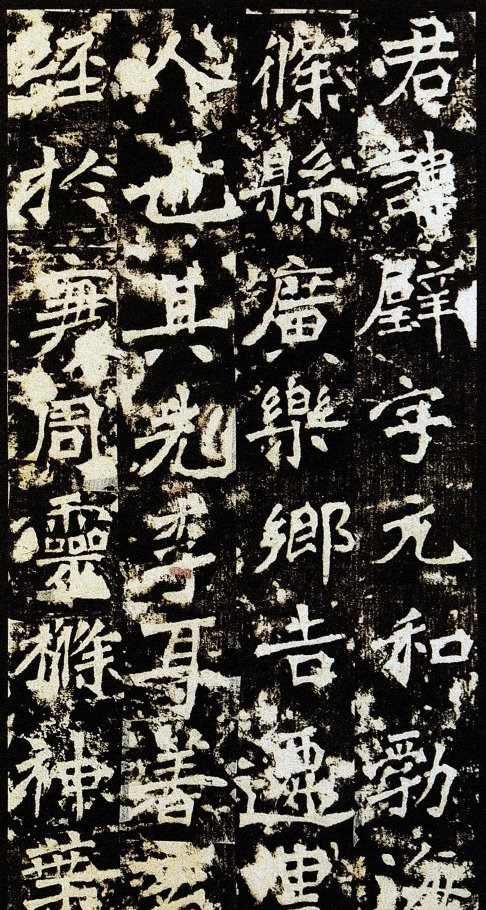 君諱璧字元和勃海
條縣廣樂鄉吉遷里
人也其先李耳著玄
經於衰周靈樤神葉